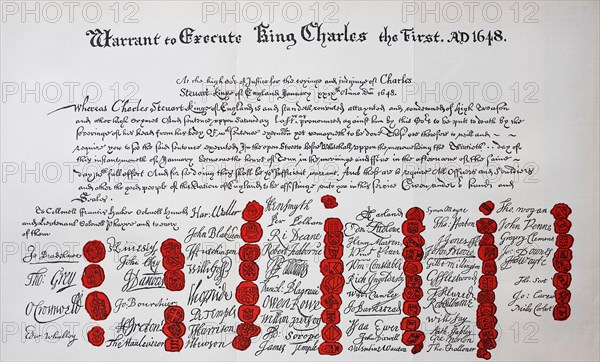 Warrant to Execute King Charles the First. AD 1648.
At the high Cor of Justice for the tryinge and judginge of Charles
Steuart kinge of England January xxixth Anno Dni 1648.
Whereas Charles Steuart kinge of England is and standeth convicted attaynted and condemned of high Treason
and other high Crymes And sentence uppon Saturday last was pronounced against him by this Cort to be putt to death by the
severinge of his head from his body Of wch sentence execucon yet remayneth to be done These are therefore to will and
require you to see the said sentence executed In the open Streete before Whitehall uppon the morrowe being the Thirtieth day of
this instante moneth of January betweene the houres of Tenn in the morninge and five in the afternoone of the same
day with full effect And for soe doing this shall be yor sufficient warrant And these are to require All Officers and Souldiers
and other the good people of this Nation of England to be assistinge unto you in this service Given under our hands and
Seales
To Collonell Francis Hacker Colonell Huncks
and Lieutenant Colonell Phayre and to every
of them
Har Waller Hen Smyth
John Blakiston Per Pelham
Ri Deane
Robert Tichborne
Jo Bradshawe
Tho Grey
O Cromwell
Edw Whalley
John Okey
J Danvers
Jo Bourchier
H Ireton
Tho Mauleverer
Will Goff
T Harrison
J Hewson
Owen Rowe
Ja Temple
Tho Horton
J Jones
John Moore
Hen Marten
Vinct Potter
Wm Constable
Rich Ingoldsby
Will Cawley
Jo Barkstead
Isaa Ewer
Valentine Wauton
Gilbt Millington
Will Say
Gre Norton
Tho Challoner
Tho Wogan
John Venn
Gregory Clement
Jo Downes
Tho Scot
Jo Carew
Miles Corbet